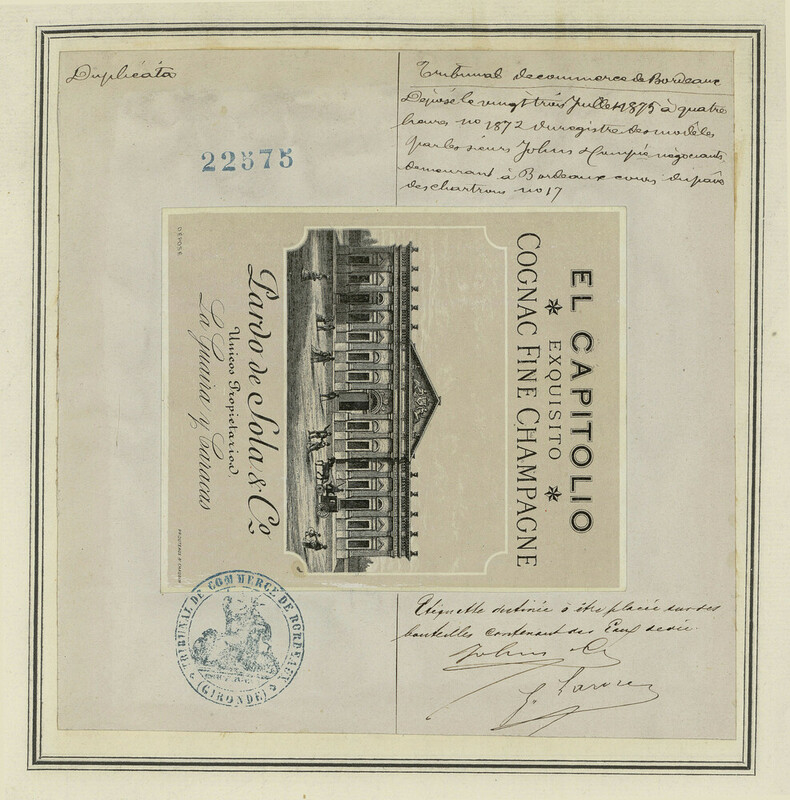 Duplicata
22575
Tribunal de commerce de Bordeaux
Déposé le vingt trois Juillet 1875 à quatre
heures no 1872 du registre des modèles
par les sieurs Johns & Compie négociants
demeurant à Bordeaux cours du pavé
des chartrons no 17
EL CAPITOLIO
* EXQUISITO *
COGNAC FINE CHAMPAGNE
Pardo de Sola & Co
Unicos Propietarios
La Guaira y Caracas
DÉPOSÉ
TRIBUNAL DE COMMERCE DE BORDEAUX
(GIRONDE)
Etiquette destinée à être placée sur des
bouteilles contenant des Eaux de vie.
Johns & Co